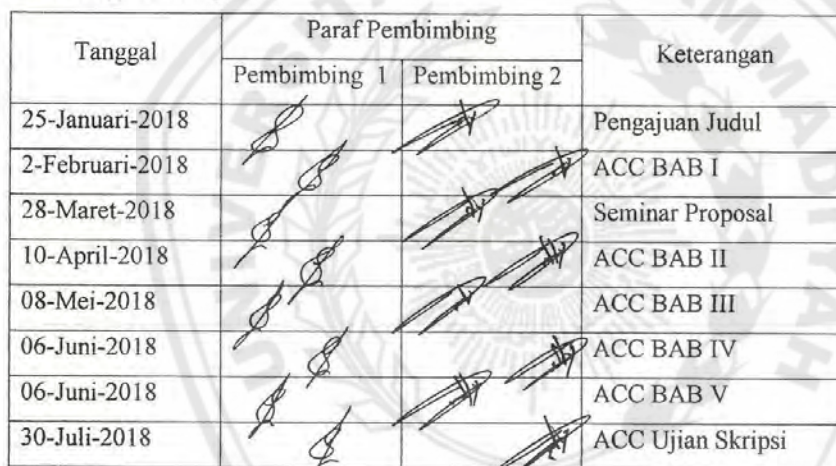 Tanggal Paraf Pembimbing Keterangan
Pembimbing 1 Pembimbing 2
25-Januari-2018 Pengajuan Judul
2-Februari-2018 ACC BAB I
28-Maret-2018 Seminar Proposal
10-April-2018 ACC BAB II
08-Mei-2018 ACC BAB III
06-Juni-2018 ACC BAB IV
06-Juni-2018 ACC BAB V
30-Juli-2018 ACC Ujian Skripsi